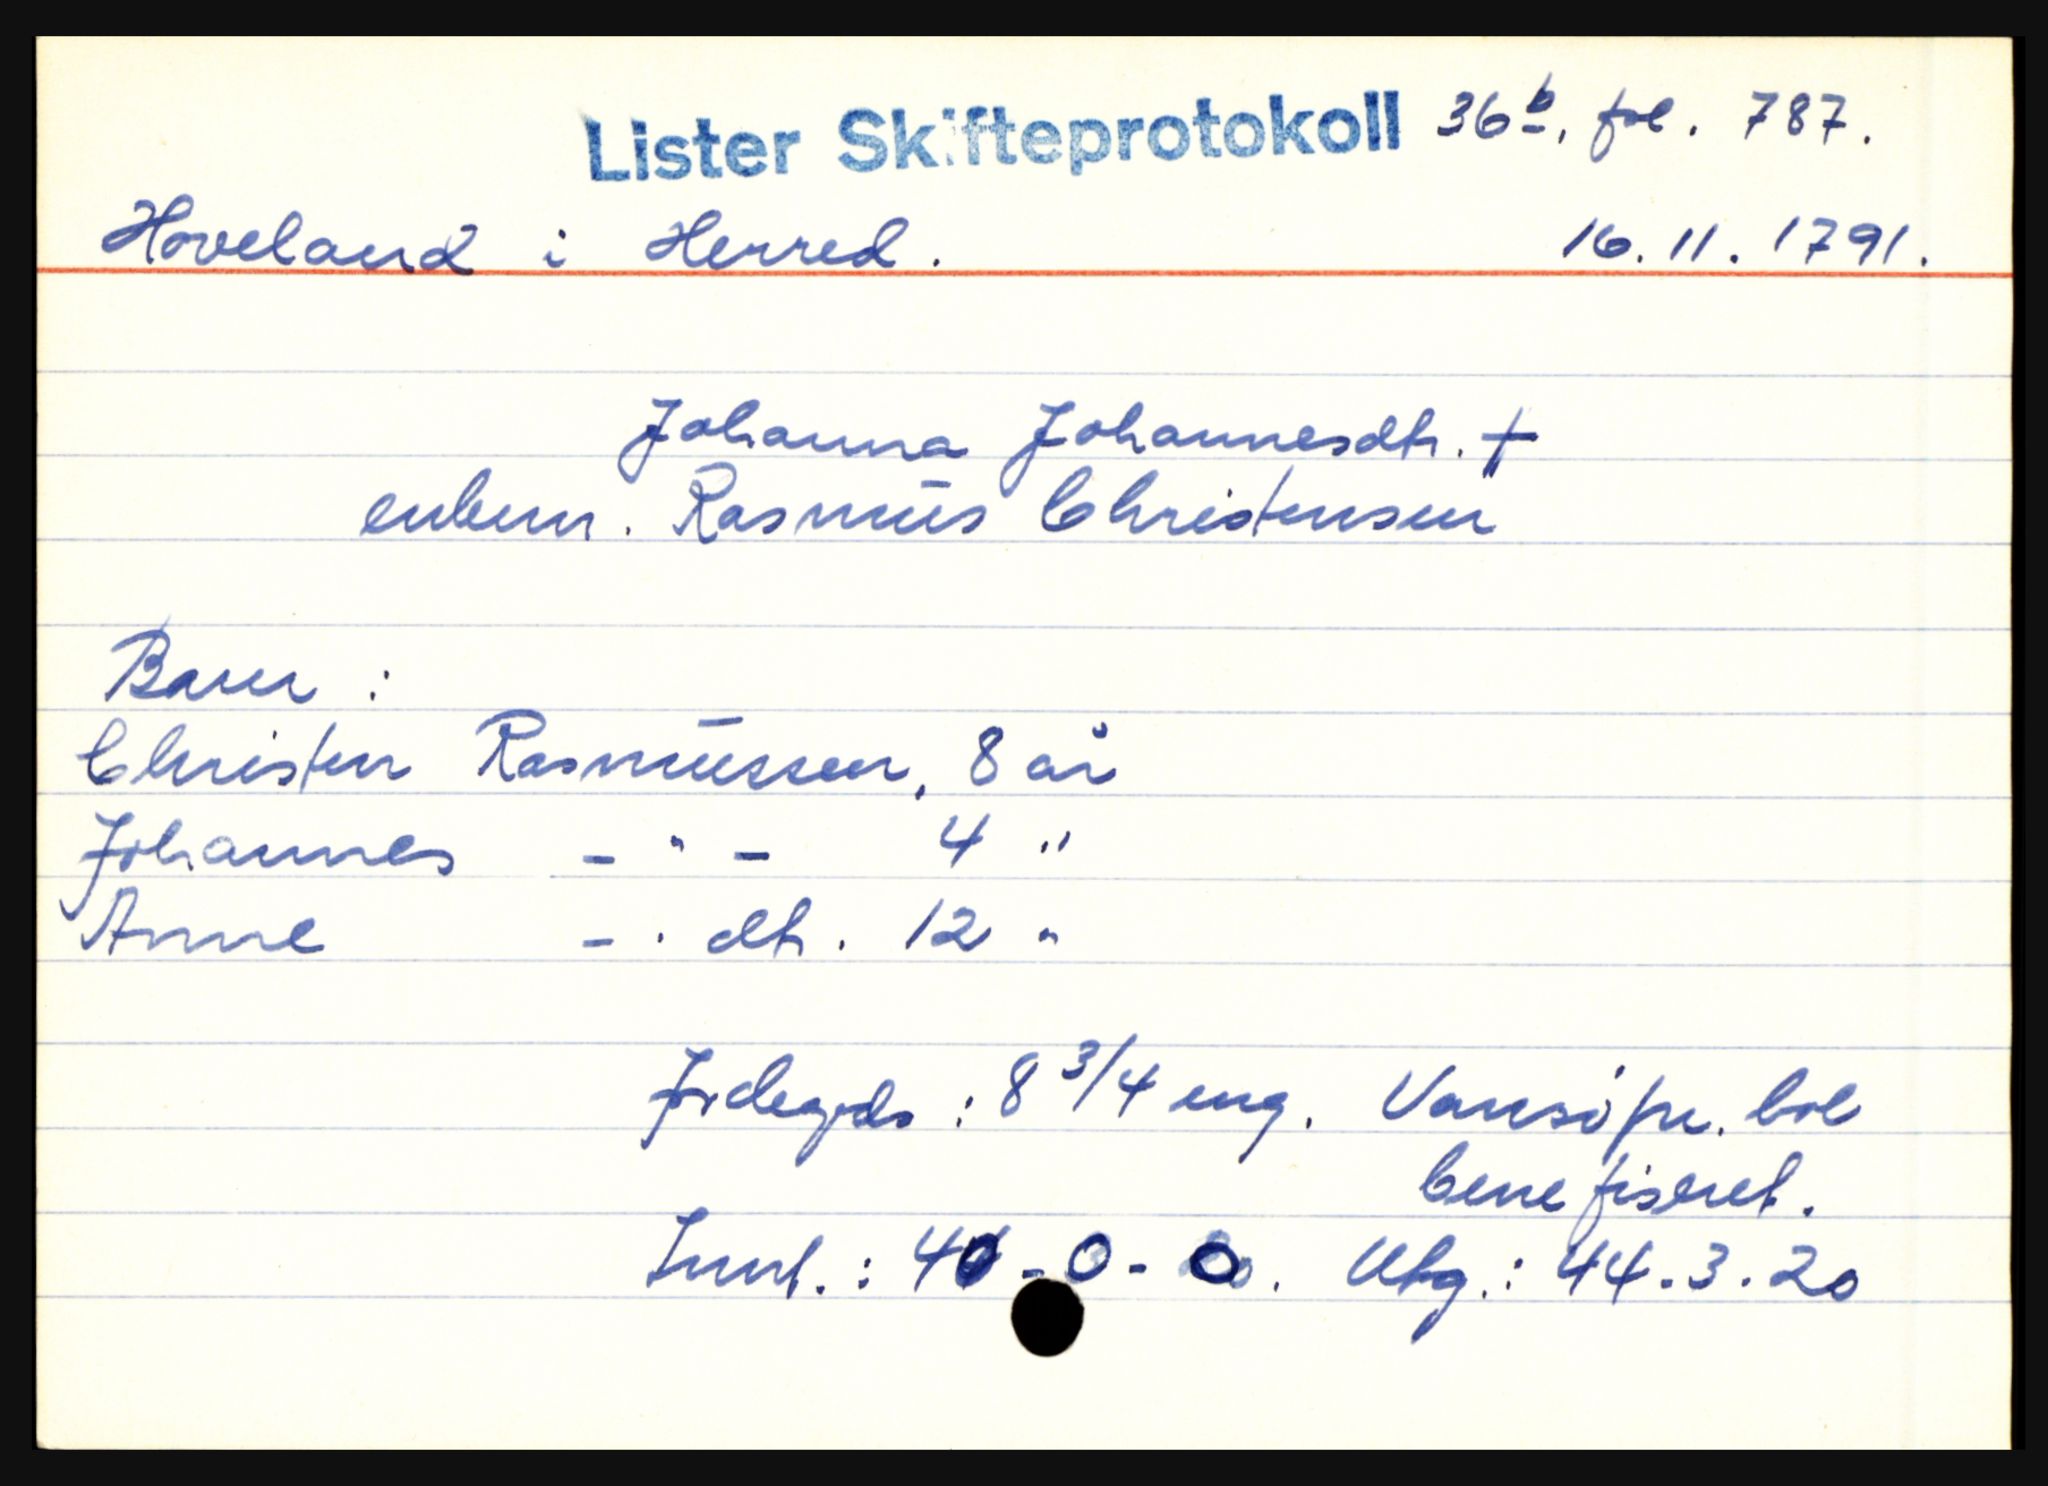 Lister Skifteprotokoll 36b, fol. 787.
Hoveland i Herred. 16.11.1791.
Johanna Johannesdtr. †
enkem. Rasmus Christensen
Barn :
Christen Rasmussen, 8 år
Johannes - " - 4 "
Anne - " dtr. 12 "
Jordegods : 8 3/4 eng. Vansø pr. bol
benefiseret.
Innt. : 40 - 0 - 0. Utg. : 44.3.20